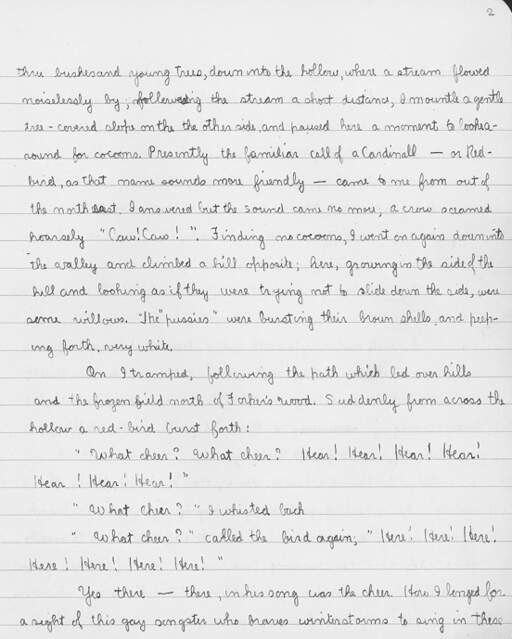 2
thru bushes and young trees, down into the hollow, where a stream flowed
noiselessly by; following the stream a short distance, I mountle a gentle
tree-covered slope on the the other side, and paused here a moment to look a-
round for cocoons. Presently the familiar call of a Cardinall — or Red-
bird, as that name sounds more friendly — came to me from out of
the north east. I answered but the sound came no more; a crow screamed
hoarsely "Caw! Caw! ". Finding no cocoons, I went on again down into
the valley and climbed a hill opposite; here, growing in the side of the
hill and looking as if they were trying not to slide down the side, were
some willows. The "pussies" were bursting their brown shells, and peep-
ing forth, very white.
On I tramped, following the path which led over hills
and the frozen field north of Forker's wood. Suddenly from across the
hollow a red-bird burst forth:
" What cheer? What cheer? Hear! Hear! Hear! Hear!
Hear! Hear! Hear! "
" What cheer? " I whisted back
" What cheer? " called the bird again; " Here! Here! Here!
Here! Here! Here! Here! "
Yes there — there, in his song was the cheer. How I longed for
a sight of this gay songster who braves winter storms to sing in these